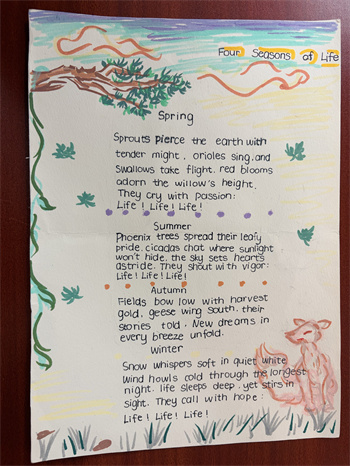 Four Seasons of Life
Spring
Sprouts pierce the earth with
tender might, orioles sing, and
swallows take flight. red blooms
adorn the willow's height.
They cry with passion:
Life! Life! Life!
Summer
Phoenix trees spread their leafy
pride. cicadas chat where sunlight
won't hide. the sky sets hearts
astride. They shout with vigor:
Life! Life! Life!
Autumn
Fields bow low with harvest
gold. geese wing south, their
stories told. New dreams in
every breeze unfold.
Winter
Snow whispers soft in quiet white
Wind howls cold through the longest
night. life sleeps deep, yet stirs in
sight. They call with hope:
Life! Life! Life!